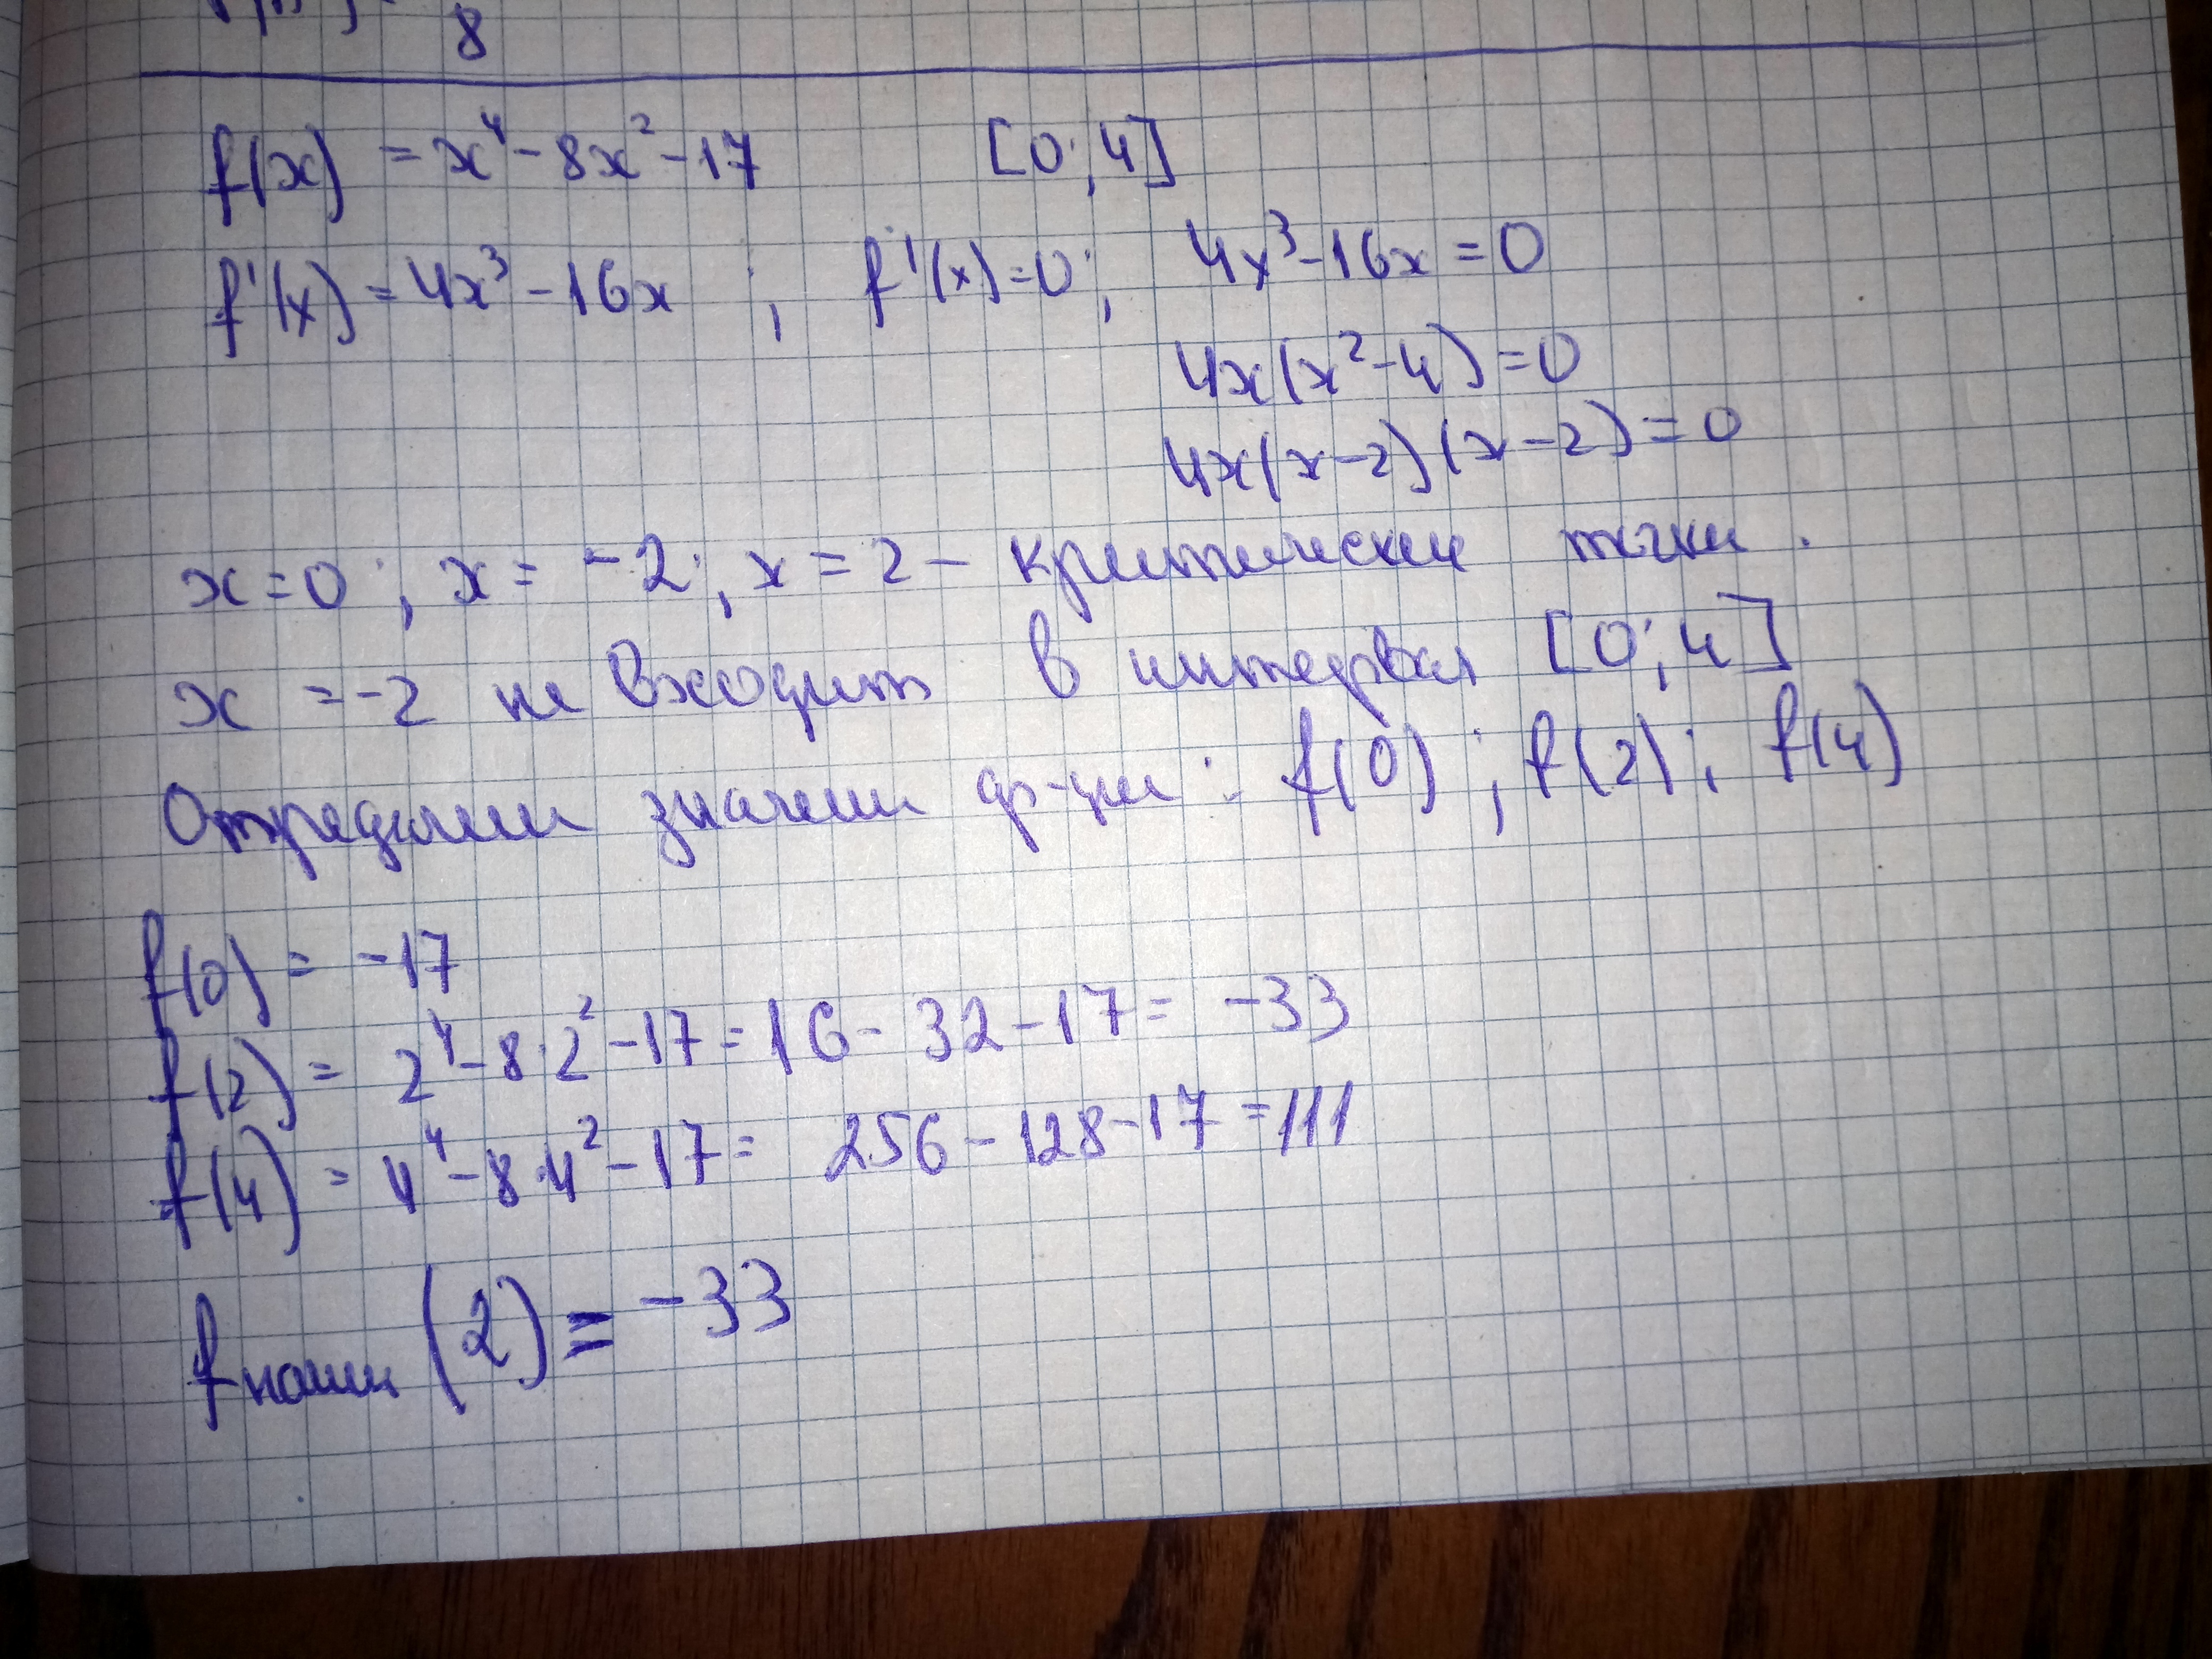 8
f(x) = x⁴ - 8x² - 17 [0; 4]
f'(x) = 4x³ - 16x ; f'(x) = 0; 4x³ - 16x = 0
4x(x² - 4) = 0
4x(x-2)(x-2) = 0
x = 0 ; x = -2 ; x = 2 - критические точки.
x = -2 не входит в интервал [0; 4]
Определим значения ф-ции : f(0) ; f(2) ; f(4)
f(0) = -17
f(2) = 2⁴ - 8·2² - 17 = 16 - 32 - 17 = -33
f(4) = 4⁴ - 8·4² - 17 = 256 - 128 - 17 = 111
f наим (2) = -33